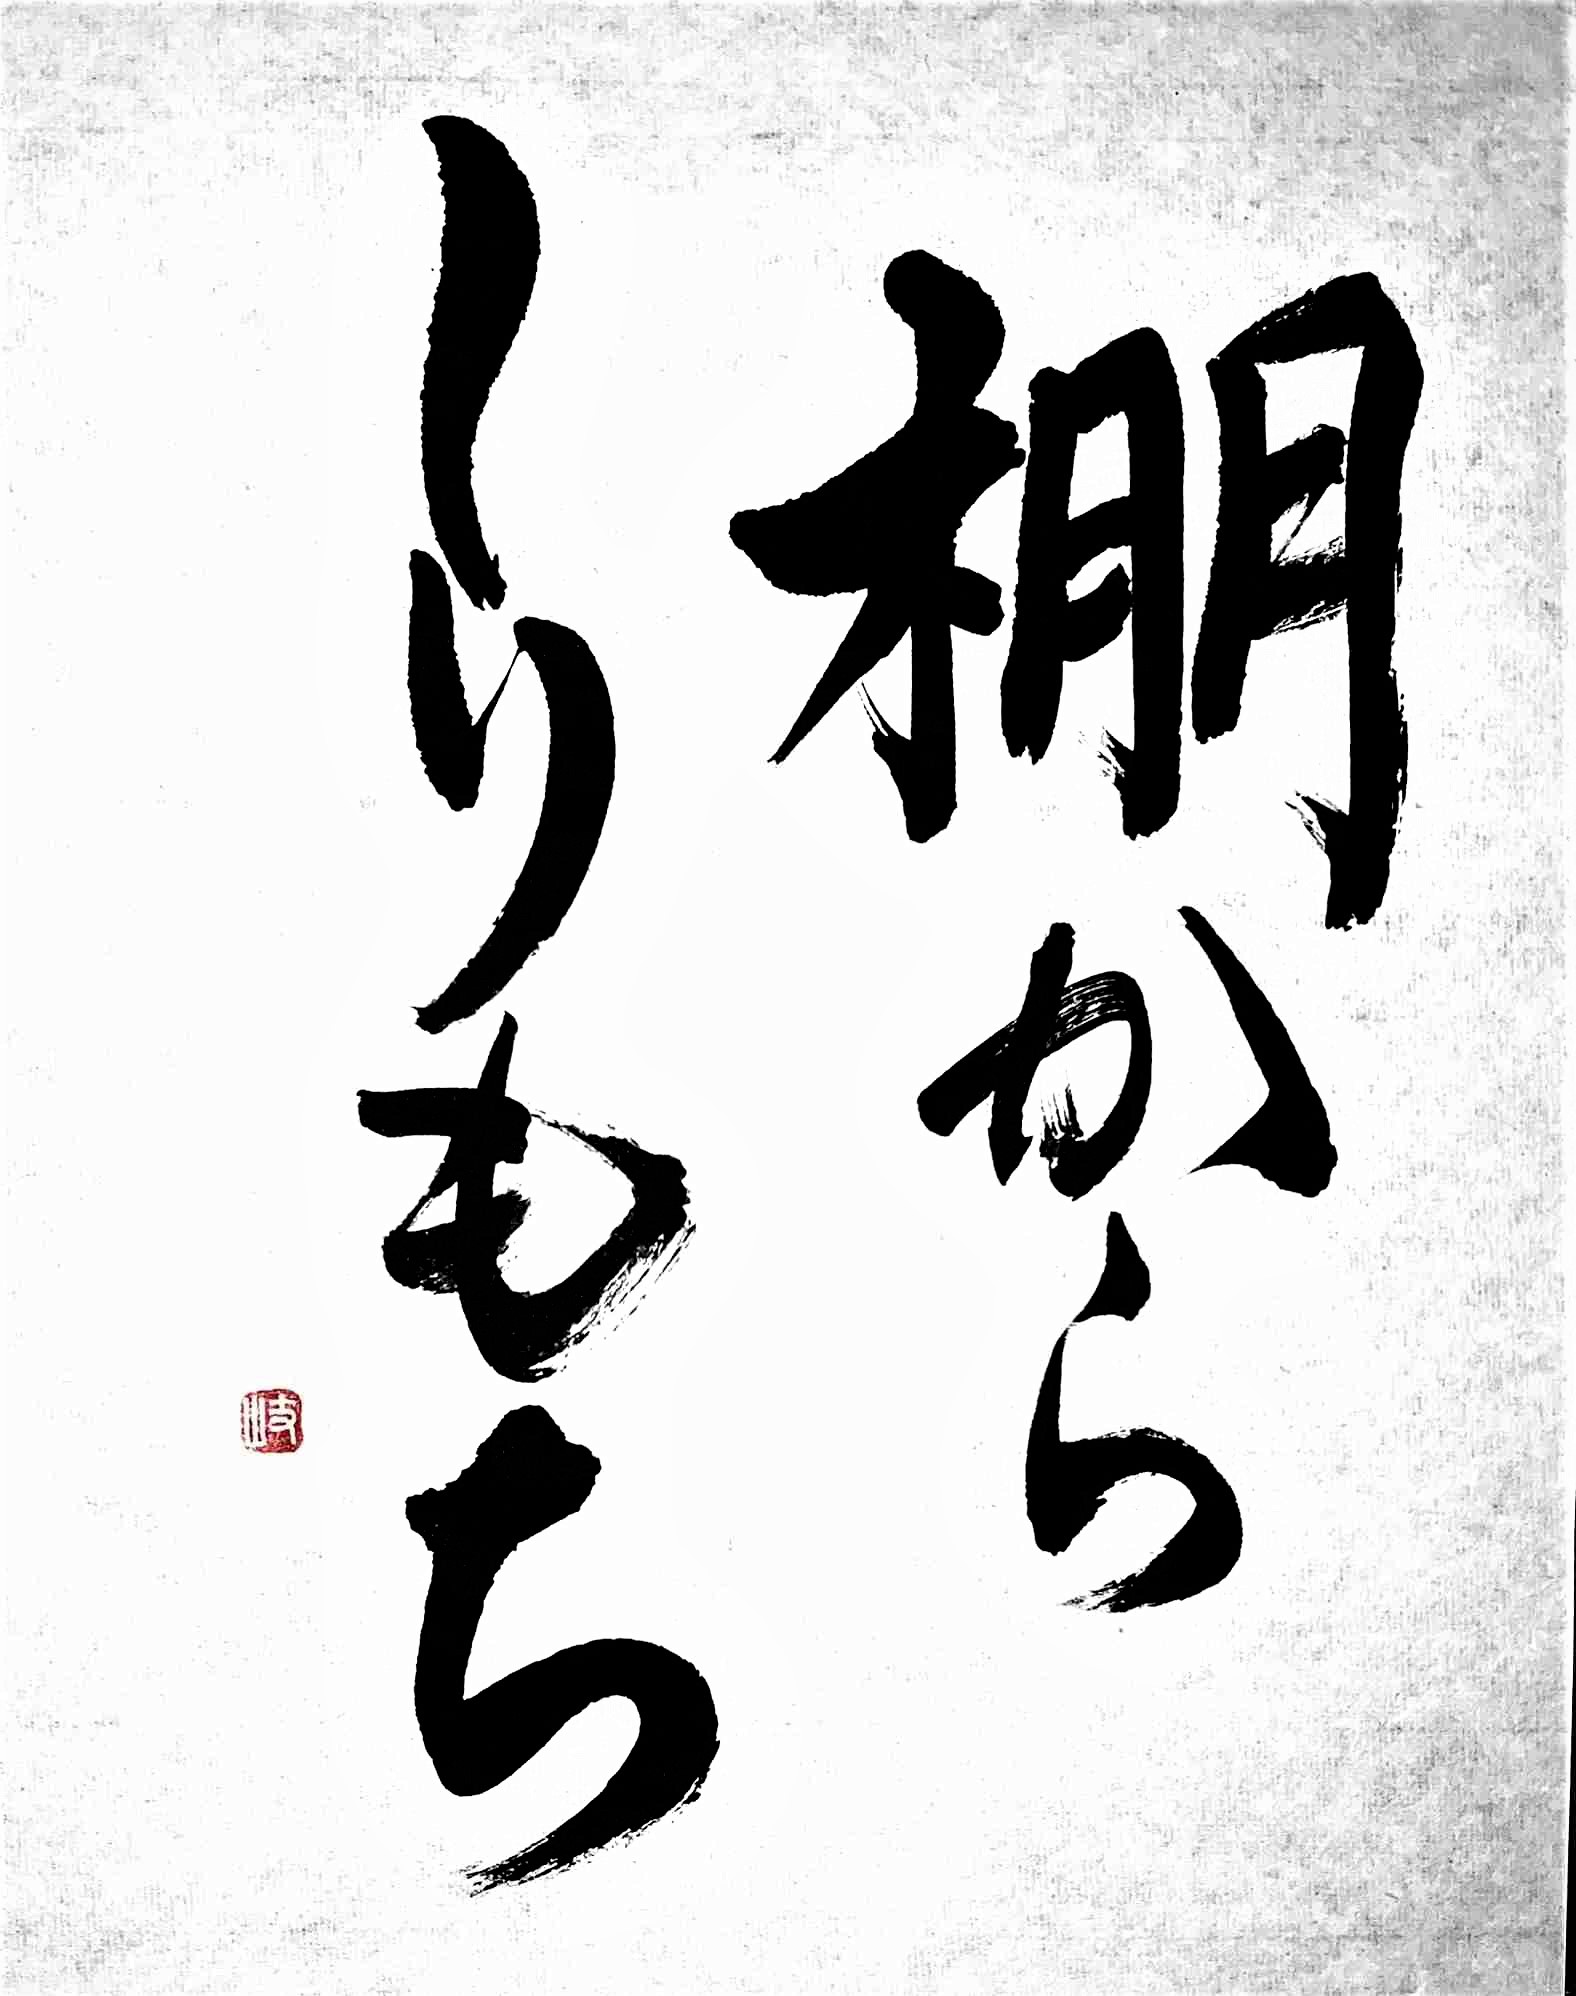 棚から
しりもち
岐